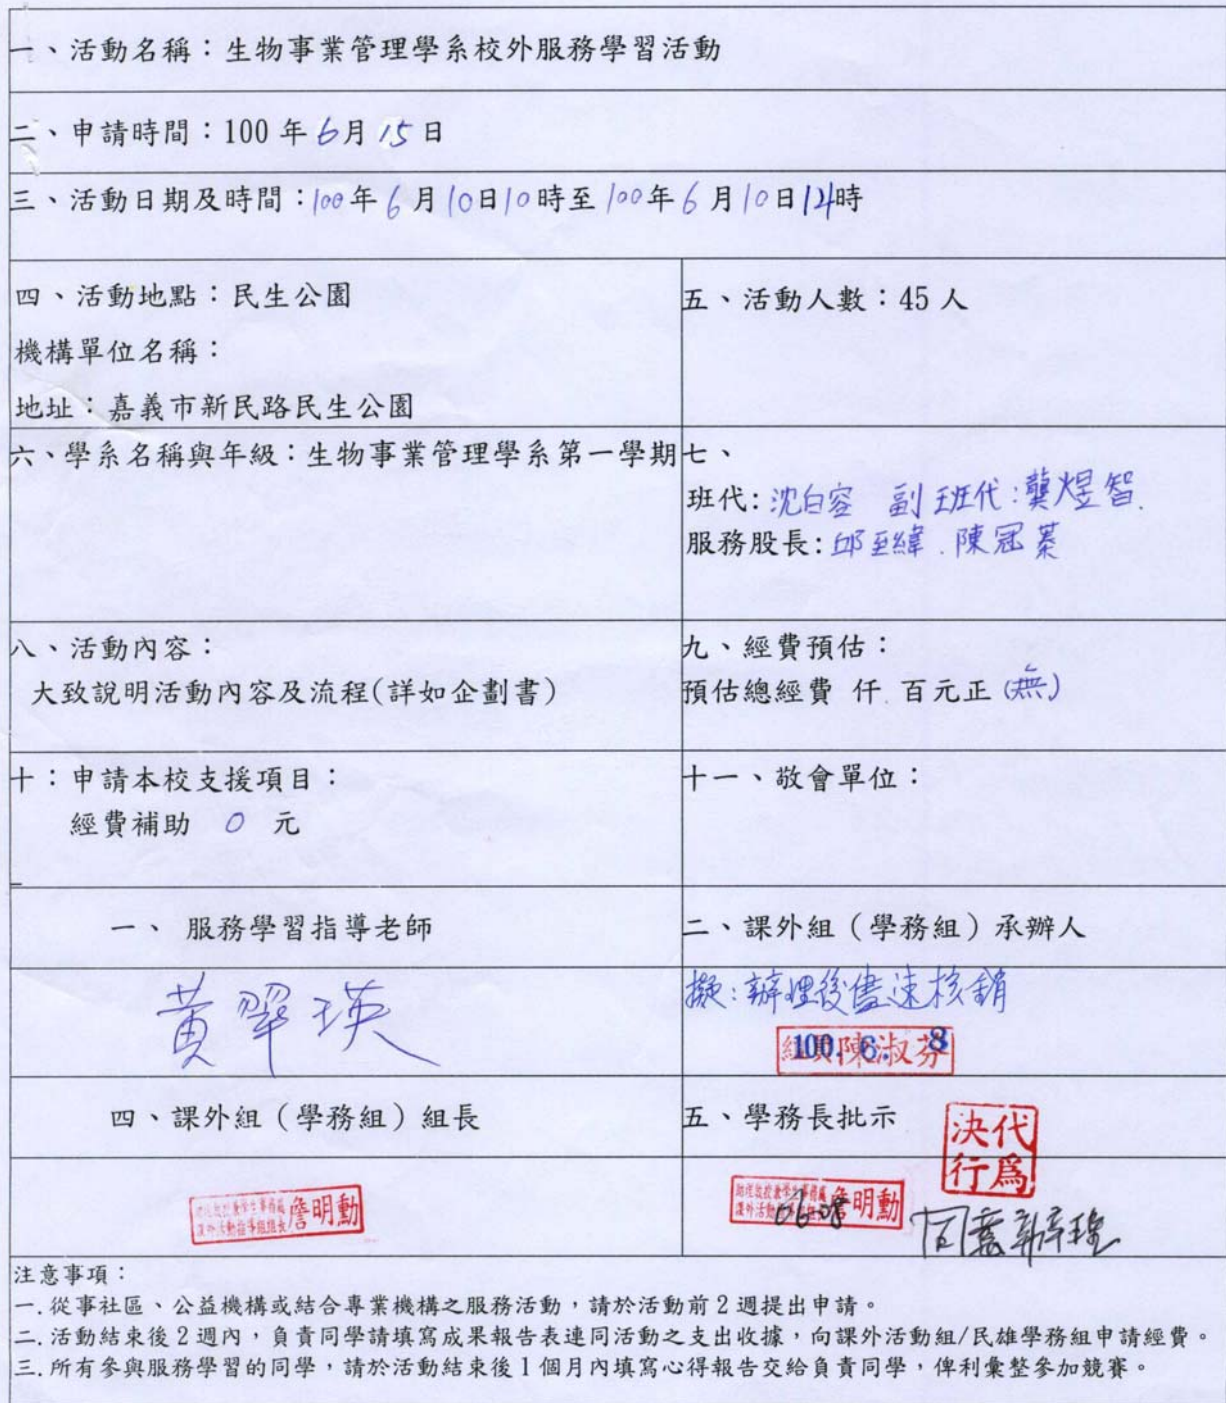 一、活動名稱：生物事業管理學系校外服務學習活動
二、申請時間：100年6月15日
三、活動日期及時間：100年6月10日10時至100年6月10日12時
四、活動地點：民生公園
機構單位名稱：
地址：嘉義市新民路民生公園
五、活動人數：45人
六、學系名稱與年級：生物事業管理學系第一學期
七、
班代：沈白容 副班代：龔煜智
服務股長：邱至緯．陳冠蓁
八、活動內容：
大致說明活動內容及流程(詳如企劃書)
九、經費預估：
預估總經費 仟 百元正(無)
十：申請本校支援項目：
經費補助 0 元
十一、敬會單位：
一、 服務學習指導老師
二、課外組（學務組）承辦人
黃翠瑛
擬：辦理後儘速核銷
組員陳淑芬
100. 6. 8
四、課外組（學務組）組長
五、學務長批示
代為決行
助理教授兼學生事務處
課外活動指導組組長詹明勳
助理教授兼學生事務處
課外活動指導組組長詹明勳
0608
同意辦理
注意事項：
一.從事社區、公益機構或結合專業機構之服務活動，請於活動前2週提出申請。
二.活動結束後2週內，負責同學請填寫成果報告表連同活動之支出收據，向課外活動組/民雄學務組申請經費。
三.所有參與服務學習的同學，請於活動結束後1個月內填寫心得報告交給負責同學，俾利彙整參加競賽。